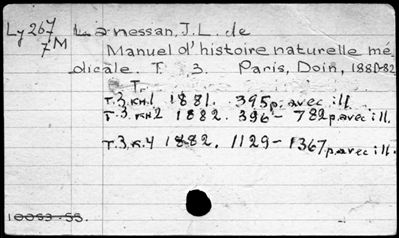 Ly 267 Lanessan, J. L. de
7M Manuel d'histoire naturelle mé-
dicale. T. 3. Paris, Doin, 1880-82
T.
T. 3. кн.1 1881. 395p. avec ill.
T. 3. кн2 1882. 396-782p. avec ill.
T. 3. к.4 1882. 1129-1367p. avec ill.
10033-55.